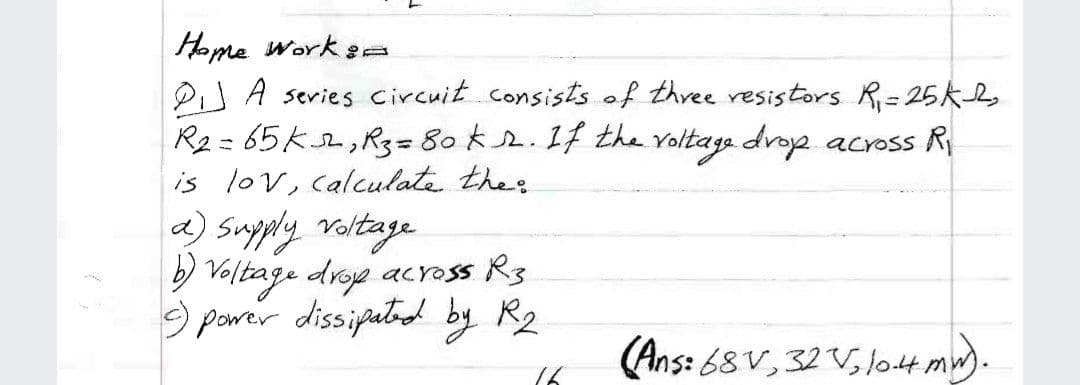 Home Work :=
Q1] A series circuit consists of three resistors R1=25kΩ,
R2=65kΩ, R3=80kΩ. If the voltage drop across R1
is 10V, calculate the:
a) Supply voltage
b) Voltage drop across R3
c) power dissipated by R2
(Ans: 68V, 32V, 10.4 mW).